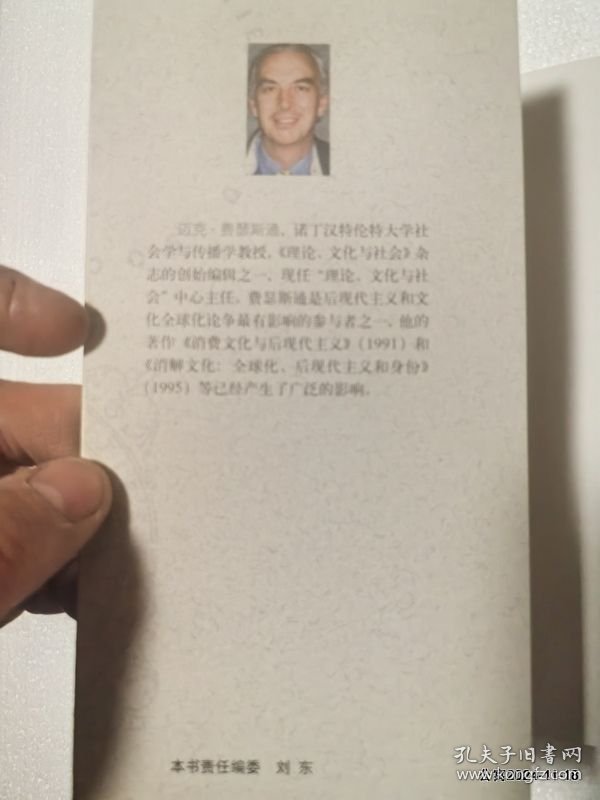 迈克·费瑟斯通，诺丁汉特伦特大学社
会学与传播学教授，《理论、文化与社会》杂
志的创始编辑之一，现任“理论、文化与社
会”中心主任。费瑟斯通是后现代主义和文
化全球化论争最有影响的参与者之一，他的
著作《消费文化与后现代主义》（1991）和
《消解文化：全球化、后现代主义和身份》
（1995）等已经产生了广泛的影响。
本书责任编委 刘 东
孔夫子旧书网